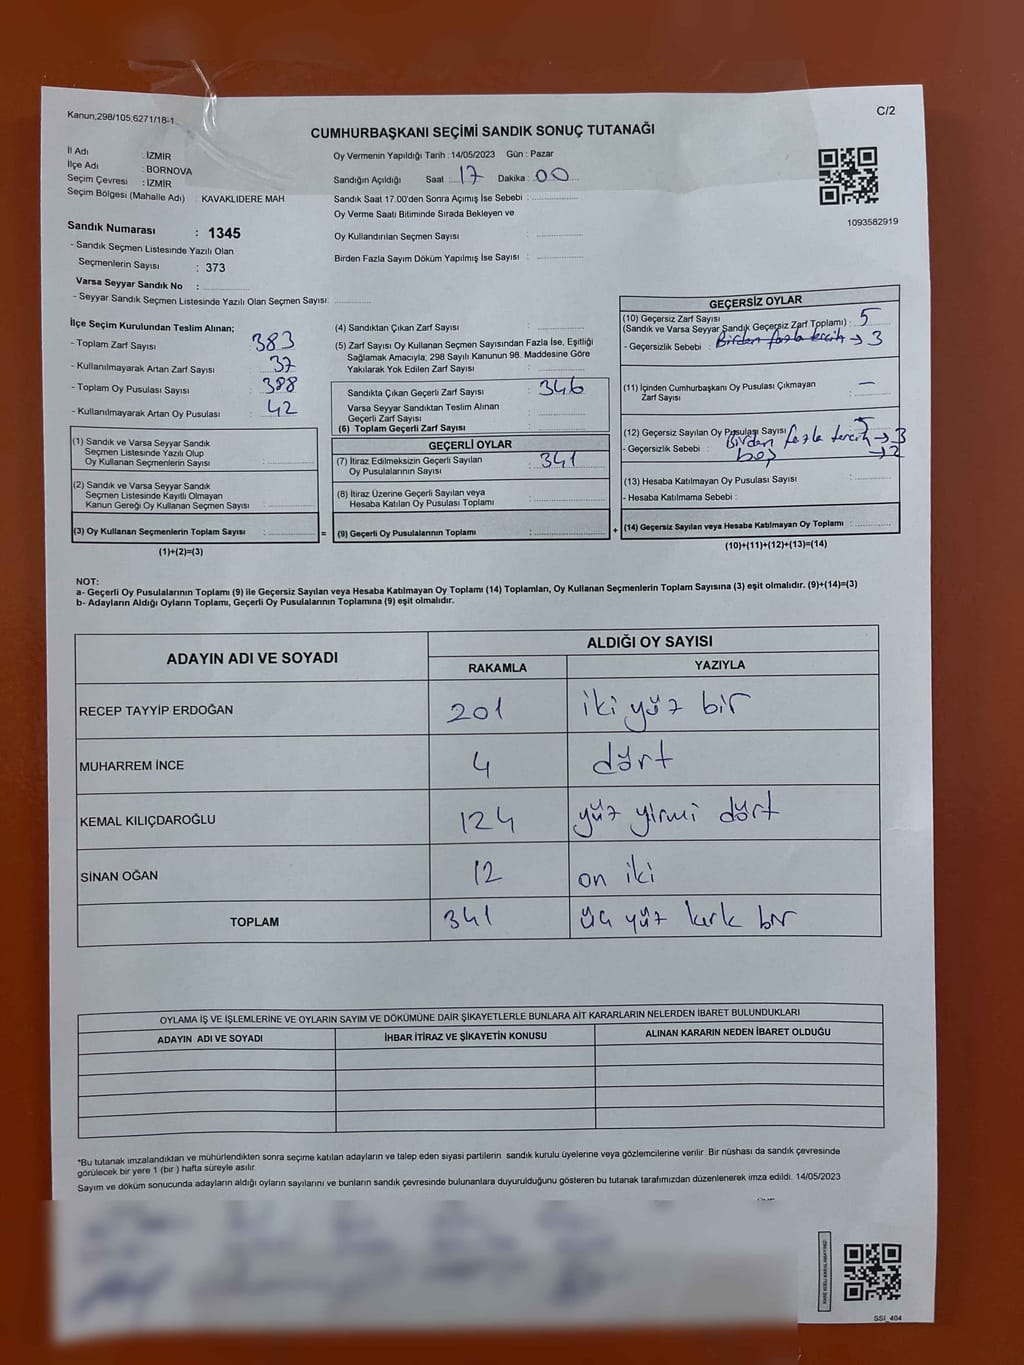 Kanun;298/105;6271/18-1
C/2
CUMHURBAŞKANI SEÇİMİ SANDIK SONUÇ TUTANAĞI
İl Adı : İZMİR
İlçe Adı : BORNOVA
Seçim Çevresi : İZMİR
Seçim Bölgesi (Mahalle Adı) : KAVAKLIDERE MAH
Oy Vermenin Yapıldığı Tarih : 14/05/2023 Gün : Pazar
Sandığın Açıldığı Saat : 17 Dakika : 00
Sandık Saat 17.00'den Sonra Açımış İse Sebebi :
Oy Verme Saati Bitiminde Sırada Bekleyen ve
Oy Kullandırılan Seçmen Sayısı :
Birden Fazla Sayım Döküm Yapılmış İse Sayısı :
1093582919
Sandık Numarası : 1345
- Sandık Seçmen Listesinde Yazılı Olan
Seçmenlerin Sayısı : 373
Varsa Seyyar Sandık No :
- Seyyar Sandık Seçmen Listesinde Yazılı Olan Seçmen Sayısı :
İlçe Seçim Kurulundan Teslim Alınan;
- Toplam Zarf Sayısı : 383
- Kullanılmayarak Artan Zarf Sayısı : 37
- Toplam Oy Pusulası Sayısı : 388
- Kullanılmayarak Artan Oy Pusulası : 42
(1) Sandık ve Varsa Seyyar Sandık
Seçmen Listesinde Yazılı Olup
Oy Kullanan Seçmenlerin Sayısı :
(2) Sandık ve Varsa Seyyar Sandık
Seçmen Listesinde Kayıtlı Olmayan
Kanun Gereği Oy Kullanan Seçmen Sayısı :
(3) Oy Kullanan Seçmenlerin Toplam Sayısı :
(1)+(2)=(3)
=
(4) Sandıktan Çıkan Zarf Sayısı :
(5) Zarf Sayısı Oy Kullanan Seçmen Sayısından Fazla İse, Eşitliği
Sağlamak Amacıyla; 298 Sayılı Kanunun 98. Maddesine Göre
Yakılarak Yok Edilen Zarf Sayısı :
Sandıkta Çıkan Geçerli Zarf Sayısı : 346
Varsa Seyyar Sandıktan Teslim Alınan
Geçerli Zarf Sayısı :
(6) Toplam Geçerli Zarf Sayısı :
GEÇERLİ OYLAR
(7) İtiraz Edilmeksizin Geçerli Sayılan
Oy Pusulalarının Sayısı : 341
(8) İtiraz Üzerine Geçerli Sayılan veya
Hesaba Katılan Oy Pusulası Toplamı :
(9) Geçerli Oy Pusulalarının Toplamı :
+
GEÇERSİZ OYLAR
(10) Geçersiz Zarf Sayısı
(Sandık ve Varsa Seyyar Sandık Geçersiz Zarf Toplamı) : 5
- Geçersizlik Sebebi : Birden fazla tercih → 3
(11) İçinden Cumhurbaşkanı Oy Pusulası Çıkmayan
Zarf Sayısı : —
(12) Geçersiz Sayılan Oy Pusulası Sayısı : 5
- Geçersizlik Sebebi : Birden fazla tercih → 3
boş → 2
(13) Hesaba Katılmayan Oy Pusulası Sayısı :
- Hesaba Katılmama Sebebi :
(14) Geçersiz Sayılan veya Hesaba Katılmayan Oy Toplamı :
(10)+(11)+(12)+(13)=(14)
NOT:
a- Geçerli Oy Pusulalarının Toplamı (9) ile Geçersiz Sayılan veya Hesaba Katılmayan Oy Toplamı (14) Toplamları, Oy Kullanan Seçmenlerin Toplam Sayısına (3) eşit olmalıdır. (9)+(14)=(3)
b- Adayların Aldığı Oyların Toplamı, Geçerli Oy Pusulalarının Toplamına (9) eşit olmalıdır.
ADAYIN ADI VE SOYADI
ALDIĞI OY SAYISI
RAKAMLA YAZIYLA
RECEP TAYYİP ERDOĞAN 201 iki yüz bir
MUHARREM İNCE 4 dört
KEMAL KILIÇDAROĞLU 124 yüz yirmi dört
SİNAN OĞAN 12 on iki
TOPLAM 341 üç yüz kırk bir
OYLAMA İŞ VE İŞLEMLERİNE VE OYLARIN SAYIM VE DÖKÜMÜNE DAİR ŞİKAYETLERLE BUNLARA AİT KARARLARIN NELERDEN İBARET BULUNDUKLARI
ADAYIN ADI VE SOYADI İHBAR İTİRAZ VE ŞİKAYETİN KONUSU ALINAN KARARIN NEDEN İBARET OLDUĞU
*Bu tutanak imzalandıktan ve mühürlendikten sonra seçime katılan adayların ve talep eden siyasi partilerin sandık kurulu üyelerine veya gözlemcilerine verilir. Bir nüshası da sandık çevresinde
görülecek bir yere 1 (bir) hafta süreyle asılır.
Sayım ve döküm sonucunda adayların aldığı oyların sayılarını ve bunların sandık çevresinde bulunanlara duyurulduğunu gösteren bu tutanak tarafımızdan düzenlenerek imza edildi. 14/05/2023
SSI_404